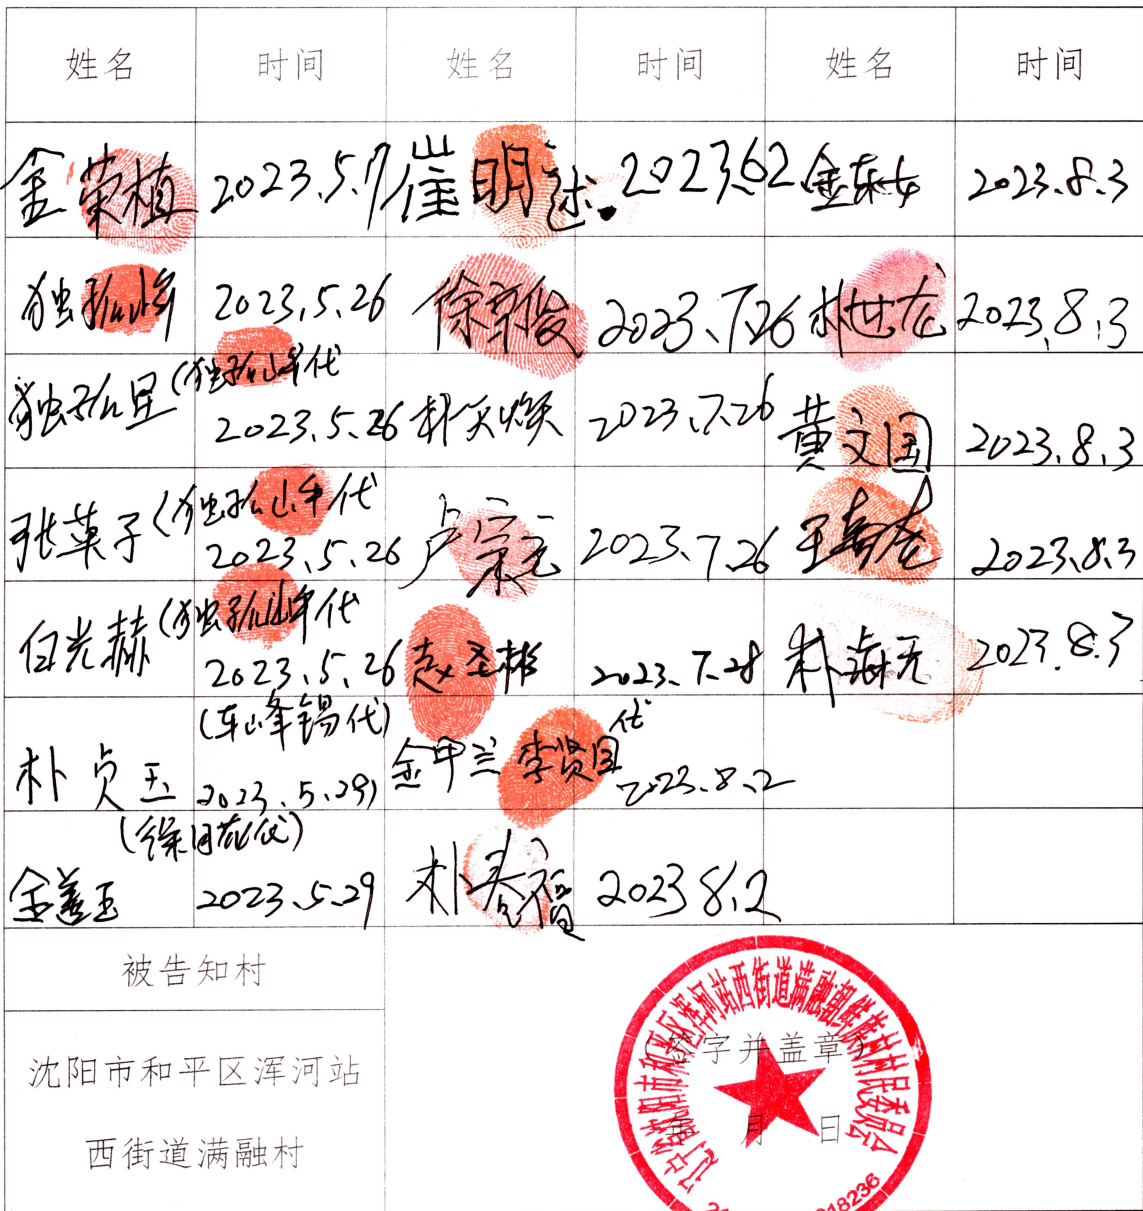 姓名 时间 姓名 时间 姓名 时间
金荣植 2023.5.17 崔明 2023.6.2 金 女 2023.8.3
独孤峰 2023.5.26 徐 俊 2023.7.26 朴世龙 2023.8.3
独孤星(独孤峰代
2023.5.26 朴 焕 2023.7.26 黄文国 2023.8.3
张英子(独孤峰代
2023.5.26 卢宗元 2023.7.26 2023.8.3
白光赫(独孤峰代
2023.5.26 赵圣彬 2023.7.28 朴海元 2023.8.3
(车峰锡代)
朴贞玉 2023.5.29 金甲兰 李贤国代 2023.8.2
金善玉 2023.5.29 朴春福 2023.8.2
被告知村
沈阳市和平区浑河站
西街道满融村
(签字并盖章)
年 月 日
辽宁省沈阳市和平区浑河站西街道满融朝鲜族村村民委员会
18236